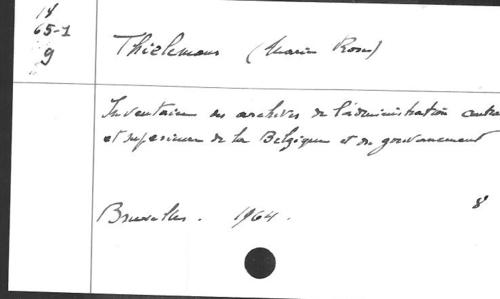 18
65-1
g
Thielemans (Marie Rose)
Inventaire des archives de l'administration centra
et superieure de la Belgique et du gouvernement
Bruxelles. 1964. 8°